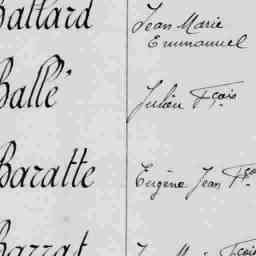 Ballard Jean Marie
Emmanuel
Ballé Julien Fçois
Baratte Eugène Jean Fçois
Barrat